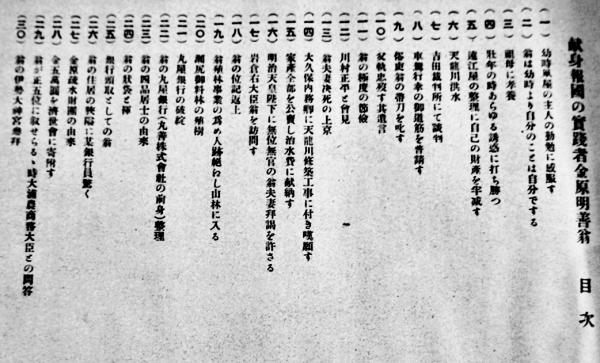 献身報國の實踐者金原明善翁 目次
(一) 幼時凧屋の主人の勤勉に感服す
(二) 翁は幼時より自分のことは自分でする
(三) 祖母に孝養
(四) 壯年の時あらゆる誘惑に打ち勝つ
(五) 遠江屋の整理に自己の財產を半減す
(六) 天龍川洪水
(七) 吉田裁判所にて談判
(八) 車駕行幸の御道筋を普請す
(九) 傷夷翁の帶刀を叱す
(一〇) 父軌忠歿す其遺言
(一一) 翁の極度の節儉
(一二) 川村正平と會見
(一三) 翁夫妻決死の上京
(一四) 大久保内務卿に天龍川修築工事に付き嘆願す
(一五) 家產全部を公賣し治水費に献納す
(一六) 明治天皇陛下に無位無官の翁夫妻拜謁を許さる
(一七) 岩倉右大臣翁を訪問す
(一八) 翁の位記返上
(一九) 翁植林事業の爲め人跡絕わし山林に入る
(二〇) 瀨尻御料林の植樹
(二一) 丸屋銀行の破綻
(二二) 翁の丸屋銀行(丸善株式會社の前身)整理
(二三) 翁の四品居士の由來
(二四) 翁の狀袋と褌
(二五) 銀行頭取としての翁
(二六) 翁の住居の狹隘に某銀行員驚く
(二七) 金原疏水財團の由來
(二八) 金五萬圓を濟世會に寄附す
(二九) 翁が正五位に敍せらるゝ時大浦農商務大臣との問答
(三〇) 翁の伊勢大神宮參拜